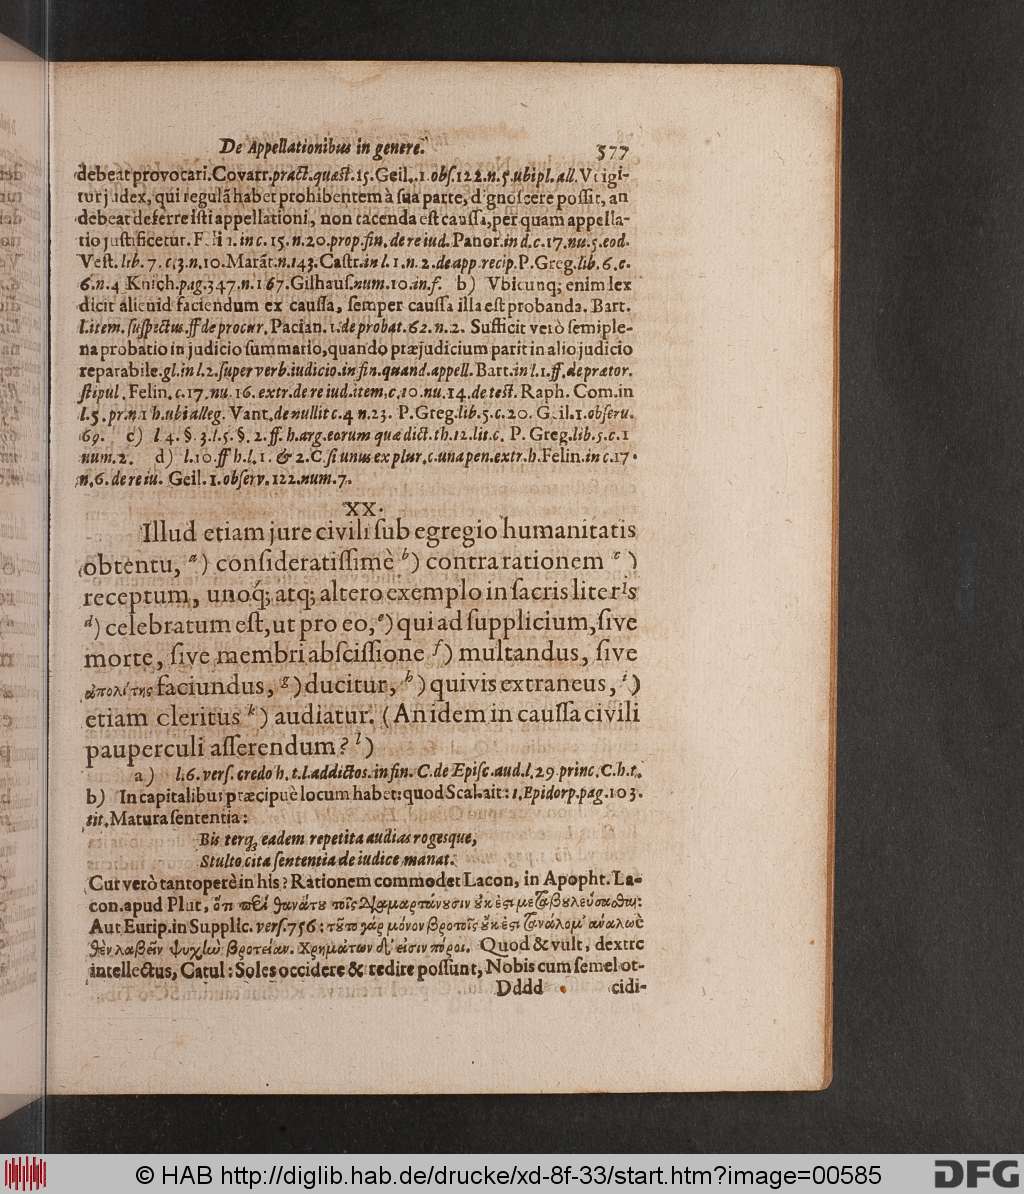 De Appellationibus in genere. 577
debeat provocari. Covarr. pract. quæst. 15. Geil. 1. obs. 122. n. 5. ubi pl. all. Vt igi-
tur judex, qui regulã habet prohibentem à sua parte, dignoscere possit, an
debeat deferre isti appellationi, non tacenda est caussa, per quam appella-
tio justificetur. in c. 15. n. 20. prop. fin. de re iud. Panor. in d. c. 17. nu. 5. eod.
Vest. lib. 7. c. 3. n. 10. Marãt. n. 143. Castr. in l. 1. n. 2. de app. recip. P. Greg. lib. 6. c.
6. n. 4 Knich. pag. 347. n. 167. Gilhaus. num. 10. in f. b) Vbicunq; enim lex
dicit aliquid faciendum ex caussa, semper caussa illa est probanda. Bart.
l. item. suspectus. ff de procur. Pacian. 1. de probat. 62. n. 2. Sufficit verò semiple-
na probatio in judicio summario, quando præjudicium parit in alio judicio
reparabile. gl. in l. 2. super verb. iudicio. in fin. quand. appell. Bart. in l. 1. ff. de prætor.
stipul. Felin. c. 17. nu. 16. extr. de re iud. item, c. 10. nu. 14. de test. Raph. Com. in
l. 5. pr. n. 1 h. ubi alleg. Vant. de nullit c. 4 n. 23. P. Greg. lib. 5. c. 20. Geil. 1. observ.
69. c) l 4. §. 3. l. 5. §. 2. ff. h. arg. eorum quæ dict. th. 12. lit. c. P. Greg. lib. 5. c. 1
num. 2. d) l. 10. ff h. l. 1. & 2. C. si unus ex plur. c. una pen. extr. h. Felin. in c. 17.
n. 6. de re iu. Geil. 1. observ. 122. num. 7.
XX.
Illud etiam jure civili sub egregio humanitatis
obtentu, a) consideratissimè b) contra rationem c)
receptum, unoq; atq; altero exemplo in sacris literis
d) celebratum est, ut pro eo, e) qui ad supplicium, sive
morte, sive membri abscissione f) multandus, sive
ἀπολίτης faciundus, g) ducitur, h) quivis extraneus, i)
etiam cleritus k) audiatur. (An idem in caussa civili
pauperculi asserendum? l)
a) l. 6. vers. credo h. t. l. addictos. in fin. C. de Episc. aud. l. 29 princ. C. h. t.
b) In capitalibus præcipuè locum habet: quod Scal. ait: 1. Epidorp. pag. 103.
tit. Matura sententia:
Bis terq; eadem repetita audias rogesque,
Stulto cita sententia de iudice manat.
Cur verò tantoperè in his? Rationem commodet Lacon, in Apopht. La-
con. apud Plut, ὅτι περὶ θανάτου τοῖς διαμαρτάνουσιν οὐκ ἔστι μεταβουλεύσασθαι:
Aut Eurip. in Supplic. vers. 756: τοῦτο γὰρ μόνον βροτοῖς οὐκ ἔστι τἀνάλωμ' ἀναλωθὲν
λαβεῖν ψυχὴν βροτείαν. χρημάτων δ' εἰσὶν πόροι. Quod & vult, dextre
intellectus, Catul: Soles occidere & redire possunt, Nobis cum semel ot-
Dddd cidi-
© HAB http://diglib.hab.de/drucke/xd-8f-33/start.htm?image=00585 DFG